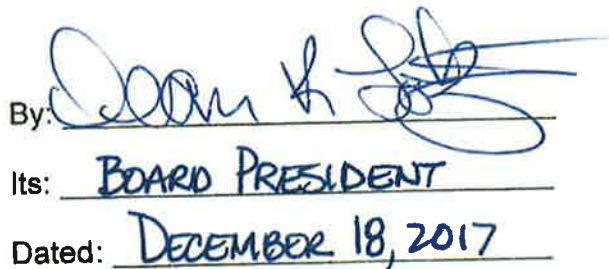 By:
Its: BOARD PRESIDENT
Dated: DECEMBER 18, 2017